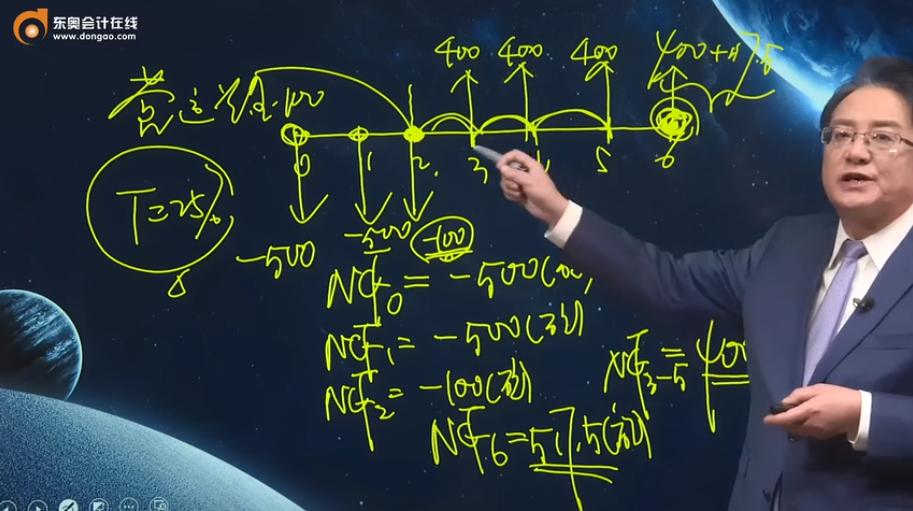 东奥会计在线
www.dongao.com
400 400 400 400+117.5
营运资金100
0 1 2 3 4 5 6
T=25%
-500 -500 -100
NCF0=-500(万)
NCF1=-500(万)
NCF2=-100(万)
NCF3-5=400
NCF6=517.5(万)